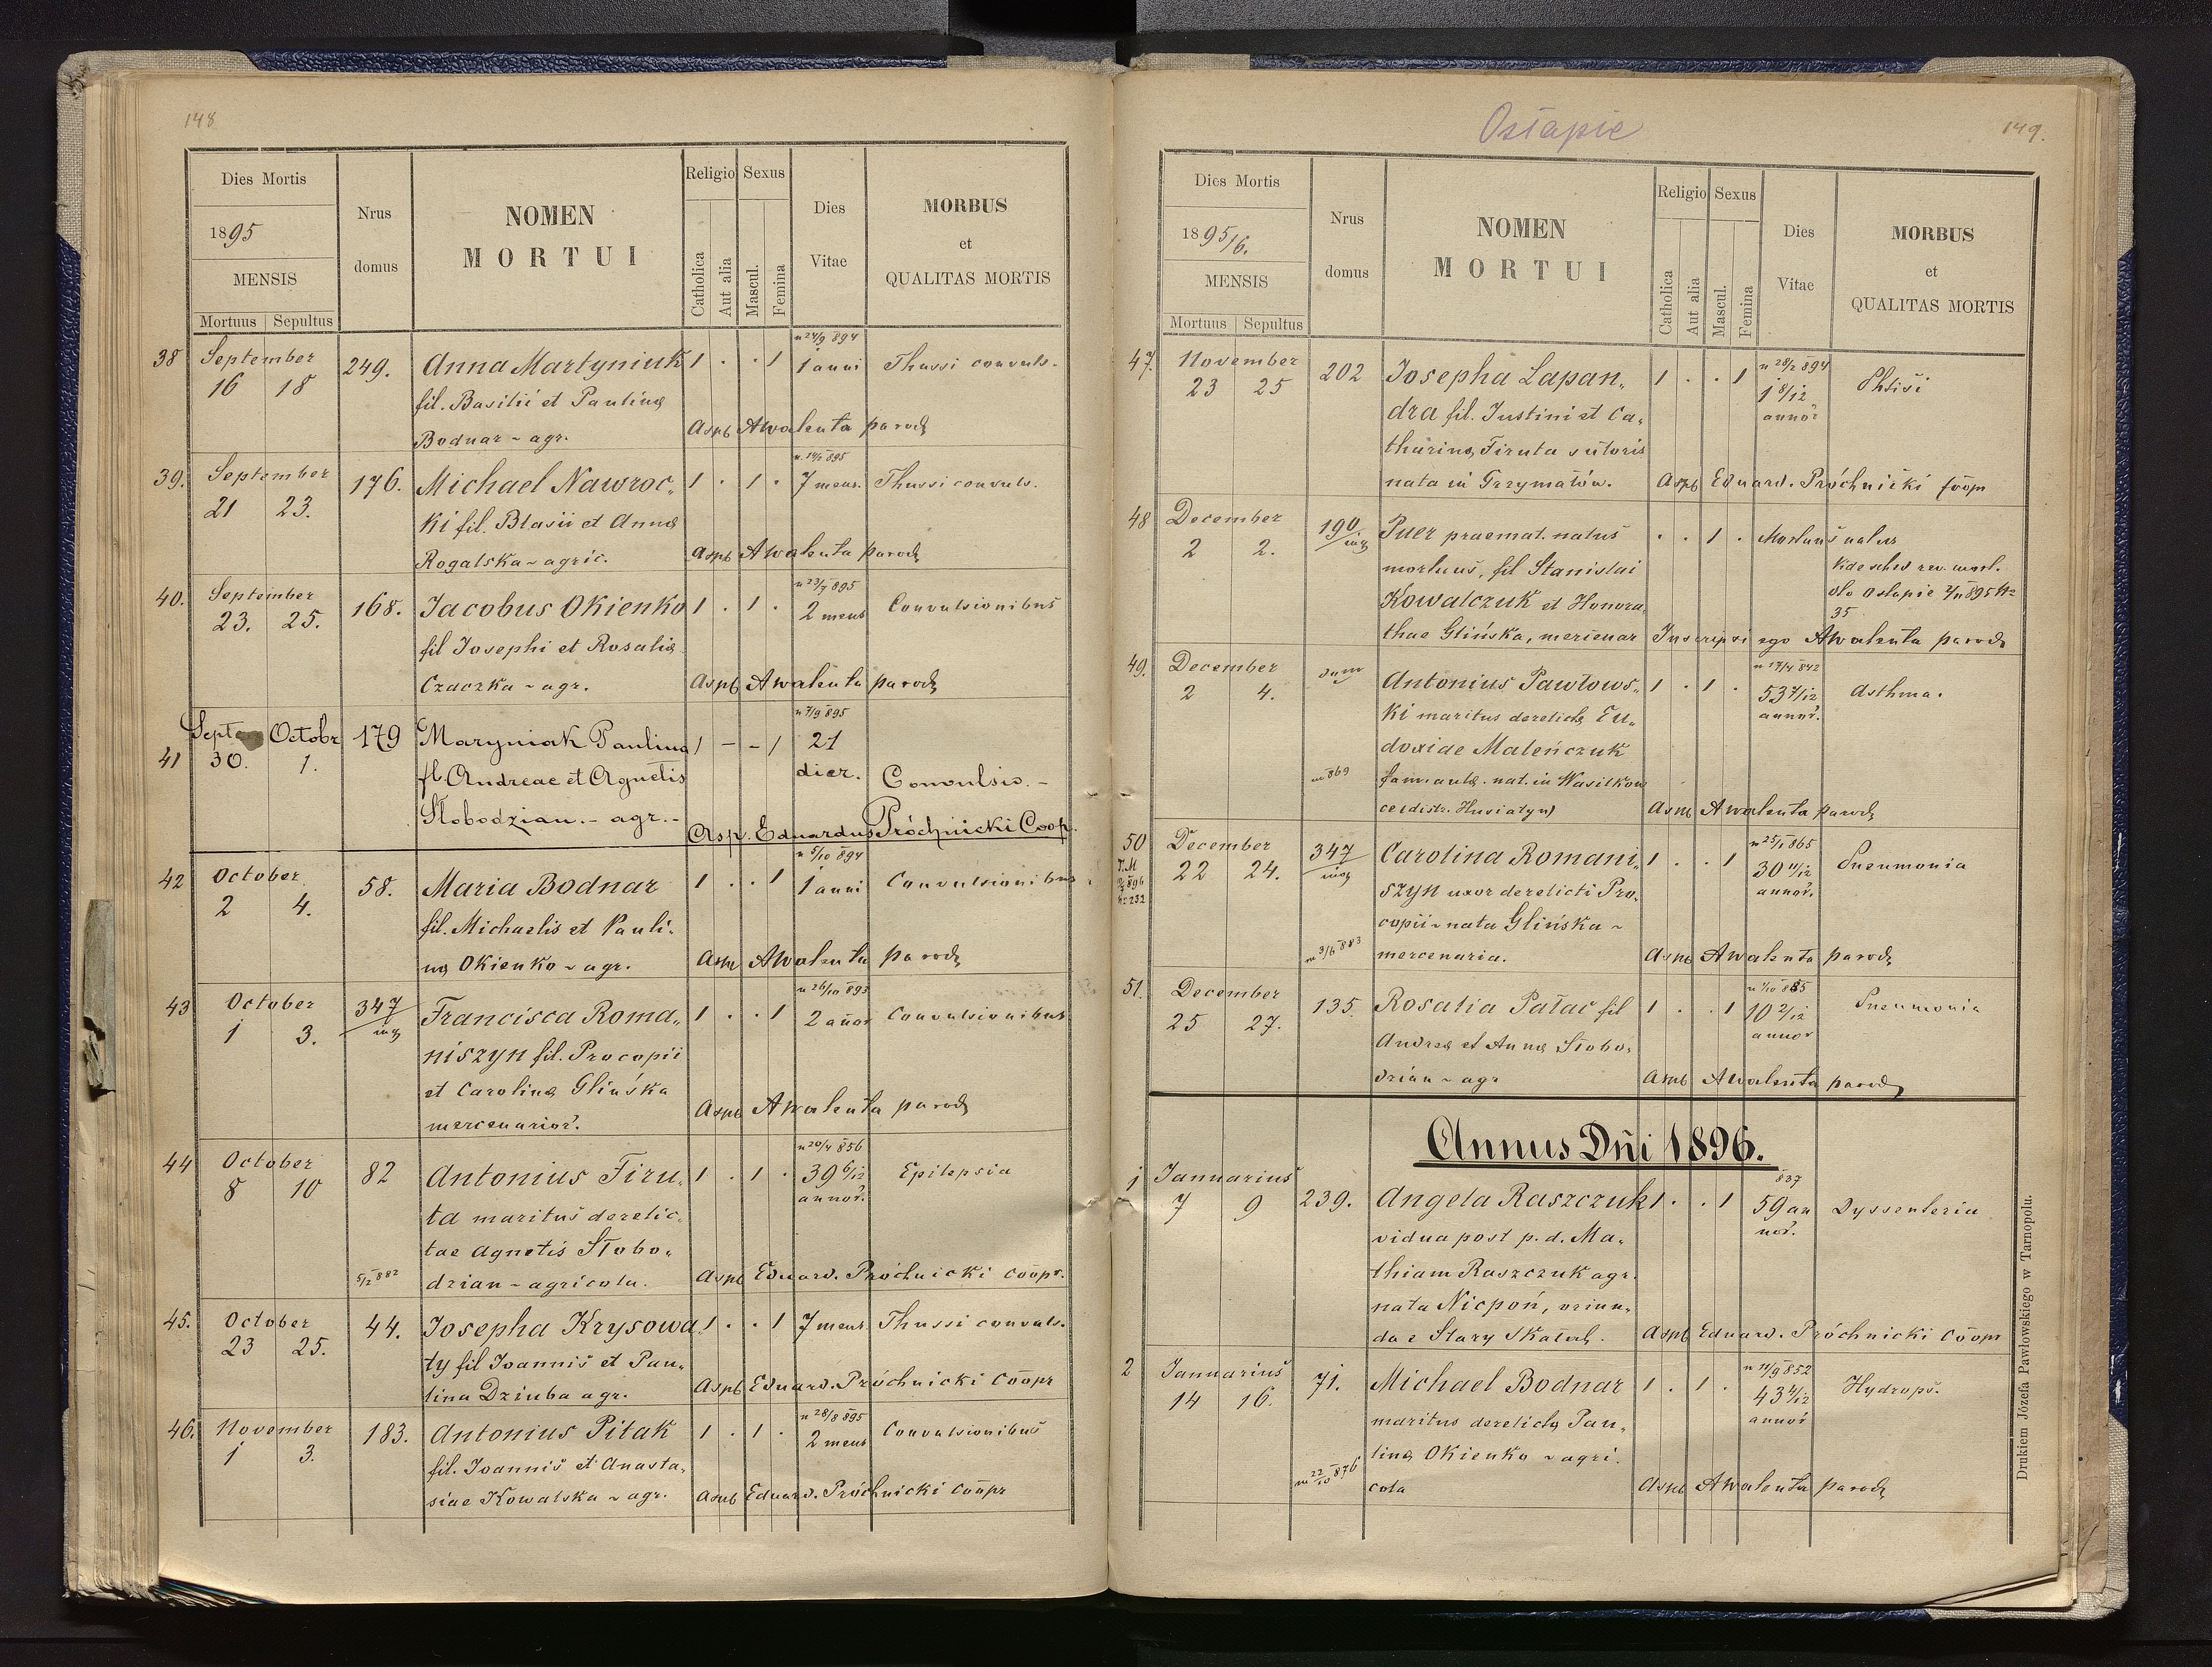 148
Dies Mortis
1895
MENSIS
Mortuus Sepultus
Nrus
domus
NOMEN
MORTUI
Religio
Catholica
Aut alia
Sexus
Mascul.
Femina
Dies
Vitae
MORBUS
et
QUALITAS MORTIS
38 September 249. Anna Martyniuk 1 . . 1 n 24/9 894
16 18 1 anni Thussi convuls.
fil. Basilii et Paulinę
Bodnar ~ agr. Aspb AWalenta parochę
39. September 176. Michael Nawroc„ 1 . 1 . 7 mens. Thussi convuls.
21 23. ki fil. Blasii et Annę
Rogalska ~ agric. Aspb AWalenta parochę
40. September 168. Jacobus Okienko 1 . 1 . n 23/7 895
23. 25. 2 mens Convulsionibus
fil Josephi et Rosalię
Czaczka ~ agr. Aspb AWalenta parochę
41 Septem Octobr 179 Maryniak Paulina 1 – – 1 n 7/9 895
30. 1. 21
fl. Andreae et Agnetis dier. Convulsio. –
Słobodzian. – agr. – Asp. Eduardus Próchnicki Coop.
42 October 58. Maria Bodnar 1 . . 1 n 5/10 894
2 4. 1 anni Convulsionibus
fil. Michaelis et Pauli„
nę Okienko ~ agr. Aspb AWalenta parochę
43 October 347/inq Francisca Roma„ 1 . . 1 n 26/10 893
1 3. 2 años Convulsionibus
niszyn fil. Procopii
et Carolinę Glińska
mercenarior. Aspb AWalenta parochę
44 October 82 Antonius Firu„ 1 . 1 . n 20/4 856
8 10 39 6/12 annor. Epilepsia
ta maritus derelic„
tae Agnetis Słobo„
5/2 882 dzian ~ agricola. Aspb Eduard. Próchnicki coopr.
45. October 44. Josepha Krysowa„ 1 . . 1 7 mens. Thussi convuls.
23 25. ty fil Joannis et Pau„
lina Dziuba agr. Aspb Eduard. Próchnicki Coopr
46. November 183. Antonius Pitak 1 . 1 . n 28/8 895
1 3. 2 mens Convulsionibus
fil. Joannis et Anasta„
siae Kowalska ~ agr. Aspb Eduard. Próchnicki Coopr
Ostapie
149.
Dies Mortis
1895/6.
MENSIS
Mortuus Sepultus
Nrus
domus
NOMEN
MORTUI
Religio
Catholica
Aut alia
Sexus
Mascul.
Femina
Dies
Vitae
MORBUS
et
QUALITAS MORTIS
47. November 202 Josepha Lapan„ 1 . . 1 n 28/2 894
23 25 1 8/12 annor Phtisi
dra fil. Justini et Ca„
tharinę Firuta sutoris
nata in Grzymałów. Aspb Eduard. Próchnicki coop
48 December 190/inq Puer praemat. natus . . 1 . Mortuus natus
2 2. mortuus, fil Stanislai
Kowalczuk et Honora„ oło Ostapie 895 N=
35
thae Glińska, mercenar Inscripsi ego AWalenta parochę
49. December dom Antonius Pawłows„ 1 . 1 . n 17/4 842
2 4. 53 7/12 annor. Asthma.
ki maritus derelictę Eu„
doxiae Maleńczuk
m 869 fam. aulę. nat. in Wasilkow
ce (distr. Husiatyn) Aspb AWalenta parochę
50 December 347/inq Carolina Romani„ 1 . . 1 n 25/1 865
22 24. 30 11/12 annor. Pneumonia
szyn uxor derelicti Pro„
copii ~ nata Glińska ~
m 3/6 883 mercenaria. Aspb AWalenta parochę
51. December 135. Rosalia Pałac fil 1 . . 1 n 1/10 885
25 27. 10 2/12 annor Pneumonia
Andreę et Annę Słobo„
dzian ~ agr Aspb AWalenta parochę
Annus Dñi 1896.
1 Januarius 239. Angela Raszczuk 1 . . 1 837
7 9 59 annor. Dyssenteria
vidua post p. d. Ma„
thiam Raszczuk agr.
nata Nicpoń, oriun„
da e Stary Skałat. Aspb Eduard. Próchnicki Coop
2 Januarius 71. Michael Bodnar 1 . 1 . n 11/9 852
14 16. 43 4/12 annor Hydrops.
maritus derelictę Pau„
linę Okienko ~ agri„
m 22/10 876 cola Aspb AWalenta parochę
Drukiem Józefa Pawłowskiego w Tarnopolu.